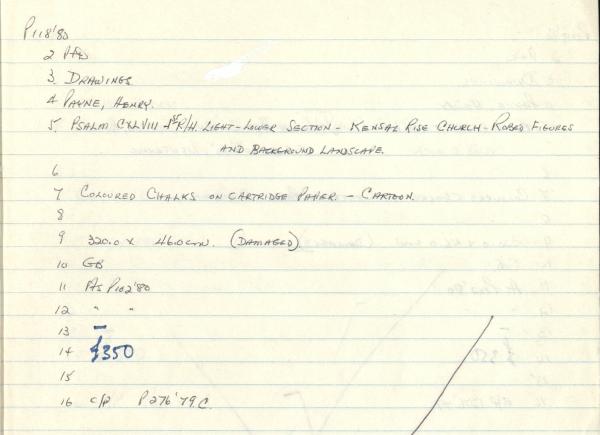 P118'80
2 P+D
3. DRAWINGS.
4. PAYNE, HENRY.
5. PSALM CXLVIII 1st R/H. LIGHT - LOWER SECTION - KENSAL RISE CHURCH - ROBED FIGURES
AND BACKGROUND LANDSCAPE.
6
7 COLOURED CHALKS ON CARTRIDGE PAPER. - CARTOON.
8
9 320.0 x 46.0cm. (DAMAGED)
10 GB
11 As P102'80
12 " "
13 -
14 £350
15
16 c/p P276'79.C.